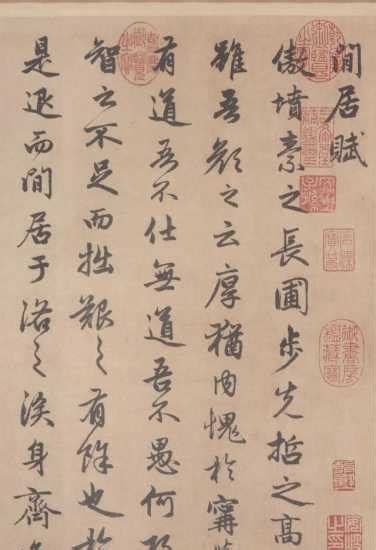 閒居賦
傲墳素之長圃步先哲之高
雖吾顏之云厚猶內愧於甯
有道吾不仕無道吾不愚何
智之不足而拙艱之有餘也
是退而閒居于洛之涘身齊